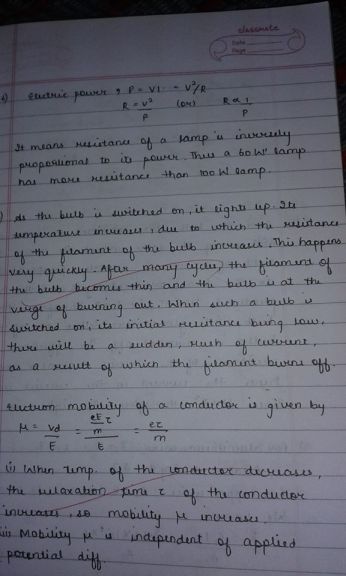 classmate
Date
Page
Electric power, P = VI = V²/R
R = V²/P (or) R ∝ 1/P
It means resistance of a lamp is inversely
proportional to its power. Thus a 60 W lamp
has more resistance than 100 W lamp.
As the bulb is switched on, it lights up. Its
temperature increases, due to which the resistance
of the filament of the bulb increases. This happens
very quickly. After many cycles, the filament of
the bulb becomes thin and the bulb is at the
verge of burning out. When such a bulb is
switched on, its initial resistance being low,
there will be a sudden, rush of current,
as a result of which the filament burns off.
Electron mobility of a conductor is given by
μ = vd/E = (eE/m τ)/E = eτ/m
(i) When temp. of the conductor decreases,
the relaxation time τ of the conductor
increases, so mobility μ increases.
(ii) Mobility μ is independent of applied
potential diff.